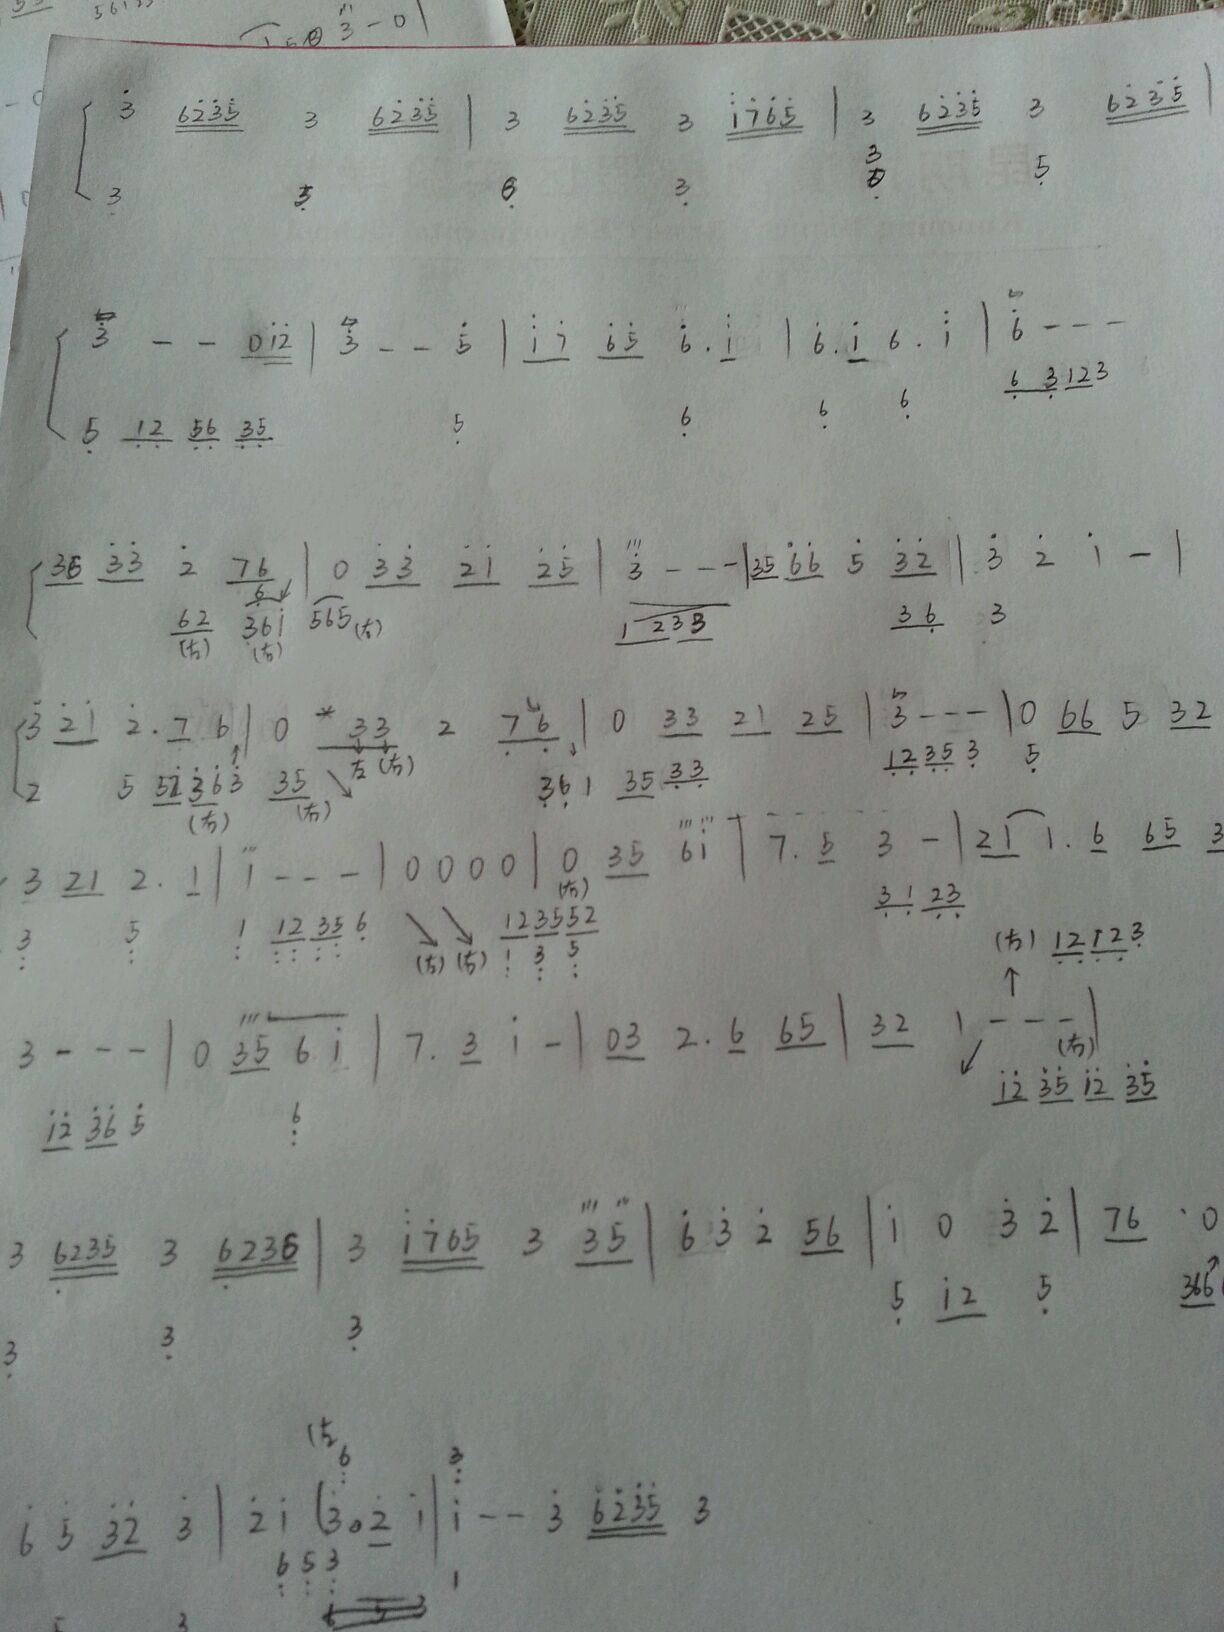 3̇ 62̇3̇5̇ 3 62̇3̇5̇ | 3 62̇3̇5̇ 3 1̇7̇6̇5̇ | 3 62̇3̇5̇ 3 62̇3̇5̇ |
3̣ 3̣ 6̣ 3̣ 3 5̣
3̇ - - 01̇2̇ | 3̇ - - 5̇ | 1̇7 6̇5̇ 6̇. 1̇ | 6̇. 1̇ 6. 1̇ | 6̇ - - -
5̣ 1̣2̣ 5̣6̣ 3̣5̣ 5̣ 6̣ 6̣ 6̣ 6̣ 3̣ 12 3
35 3̇3̇ 2̇ 76 | 0 3̇3̇ 2̇1̇ 2̇5̇ | 3̇ - - - | 35 6̇6̇ 5̇ 3̇2̇ | 3̇ 2̇ 1̇ - |
6
62 361̇ 565 (右) 1 233 36̣ 3
(右) (右)
3̇ 2̇1̇ 2. 7 6 | 0 * 33 2 7̣6̣ | 0 33 21 25 | 3 - - - | 0 66 5 32
2 5 51̇3̇6̇3̇ 35 左 (右) 3̣6̣1 35 3̣3̣ 1̣2̣3̣5̣ 3̣ 5̣
(右) (右)
3 21 2. 1 | 1̇ - - - | 0 0 0 0 | 0 35 61̇ | 7. 5 3 - | 21 1. 6 65 3
(右) 3̣1̣ 2̣3̣
3 5 1 12 35 6 (右) (右) 123552
1 3 5
(右) 1̣2̣1̣2̣3̣
3 - - - | 0 35 6 1̇ | 7. 3 1̇ - | 03 2. 6 65 | 32 1 - - - |
(右)
1̇2̇ 3̇6̇ 5̇ 6 1̇2̇ 3̇5̇ 1̇2̇ 3̇5̇
3 6̣235 3 6̣236 | 3 1̇7̇65 3 35 | 6̇ 3̇ 2̇ 56 | 1̇ 0 3̇ 2̇ | 76 · 0
5̣ 1̇2 5̣ 366
3̣ 3̣ 3̣
右
6 3
6̇ 5̇ 3̇2̇ 3̇ | 2̇1̇ 3̇. 2̇ 1̇ | 1̇ - - 3̇ 6̇2̇3̇5̇ 3
6 5 3 1
5 3 6 5 3